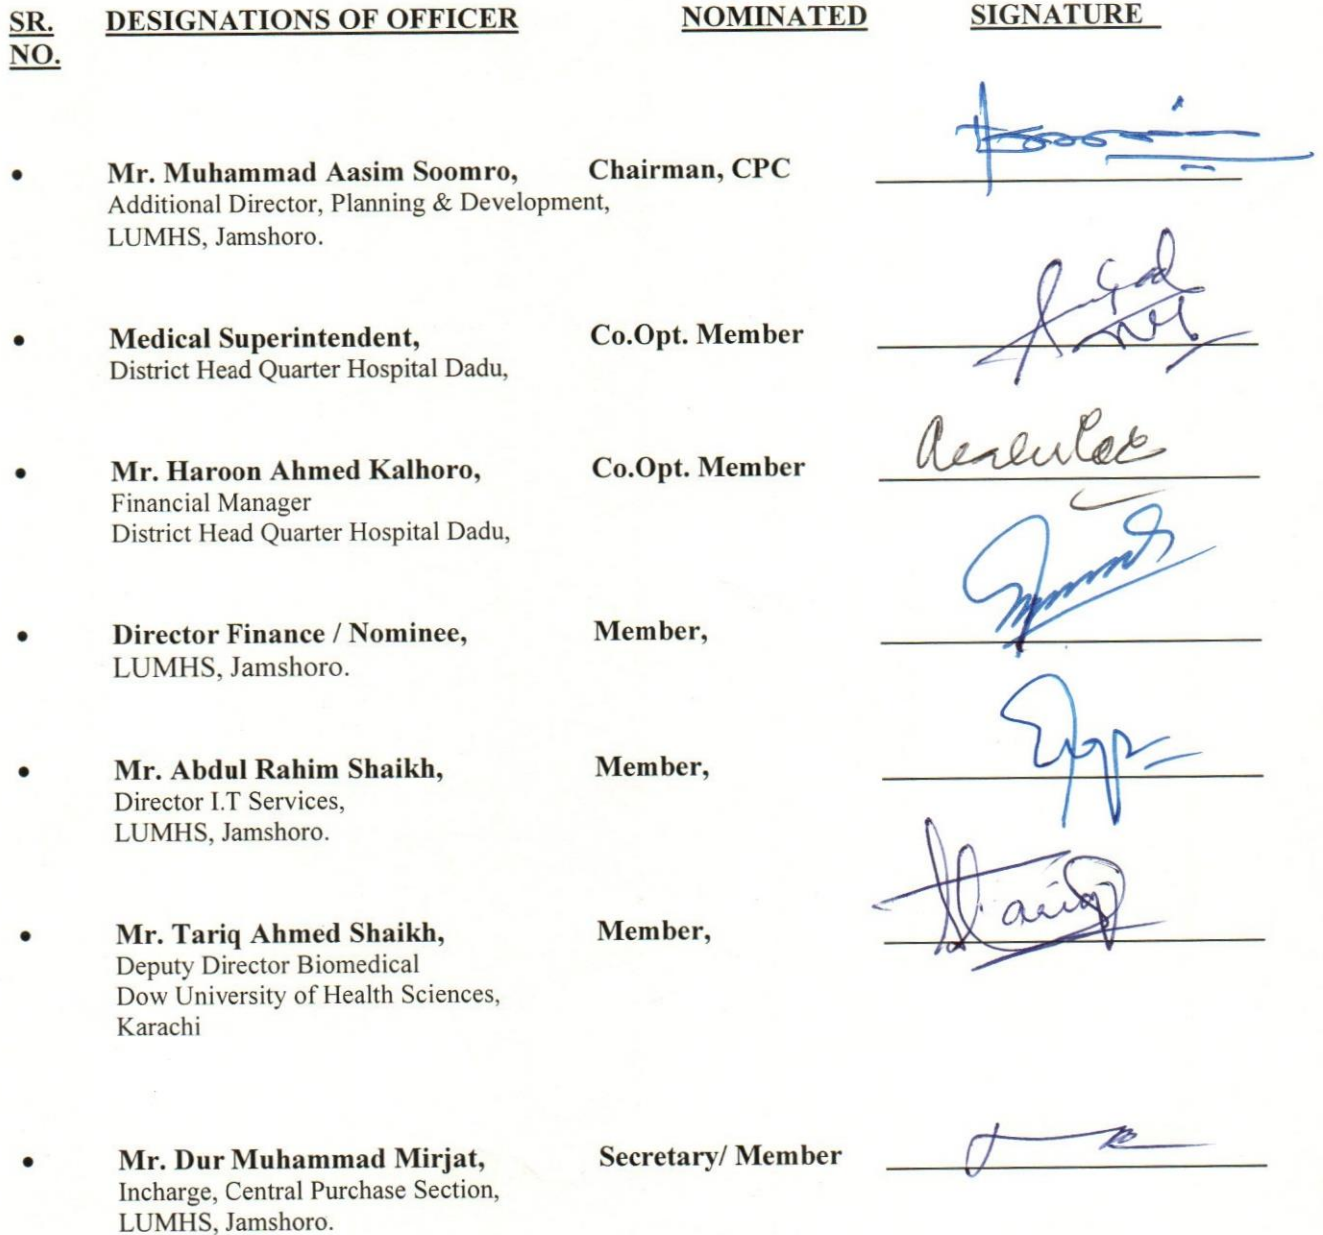 SR. DESIGNATIONS OF OFFICER NOMINATED SIGNATURE
NO.
• Mr. Muhammad Aasim Soomro, Chairman, CPC
Additional Director, Planning & Development,
LUMHS, Jamshoro.
• Medical Superintendent, Co.Opt. Member
District Head Quarter Hospital Dadu,
• Mr. Haroon Ahmed Kalhoro, Co.Opt. Member
Financial Manager
District Head Quarter Hospital Dadu,
• Director Finance / Nominee, Member,
LUMHS, Jamshoro.
• Mr. Abdul Rahim Shaikh, Member,
Director I.T Services,
LUMHS, Jamshoro.
• Mr. Tariq Ahmed Shaikh, Member,
Deputy Director Biomedical
Dow University of Health Sciences,
Karachi
• Mr. Dur Muhammad Mirjat, Secretary/ Member
Incharge, Central Purchase Section,
LUMHS, Jamshoro.